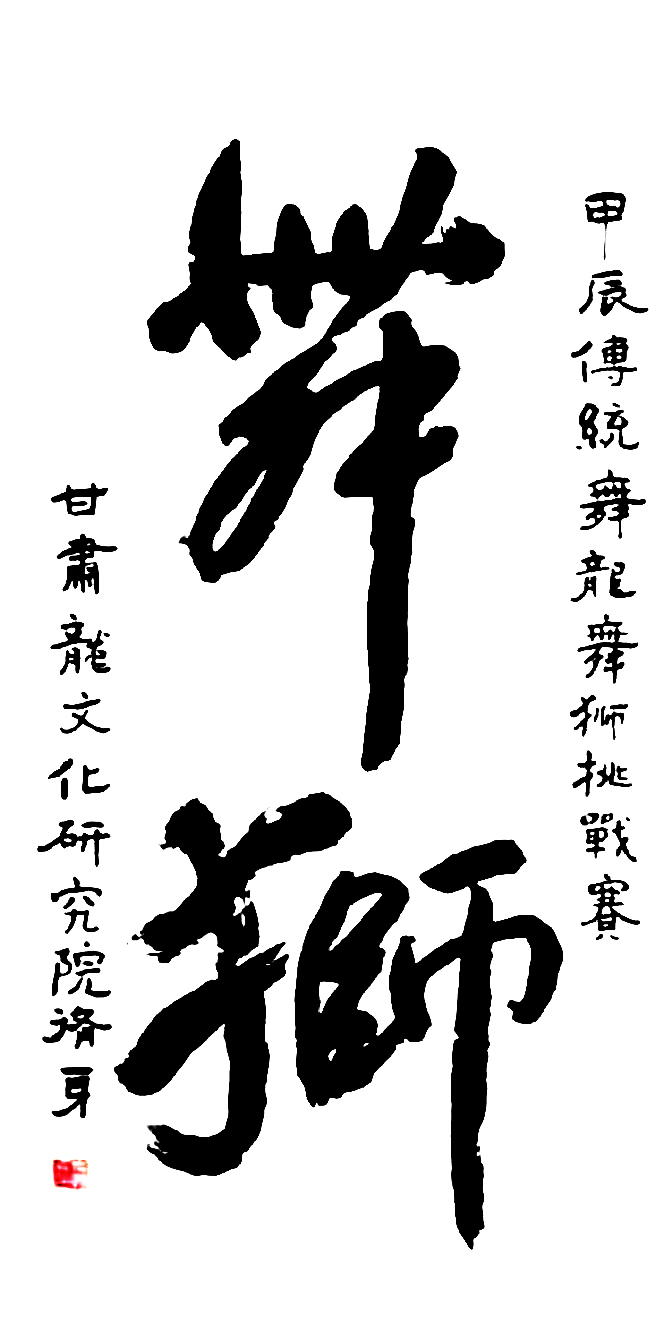 甲辰傳統舞龍舞獅挑戰賽
舞獅
甘肅龍文化研究院